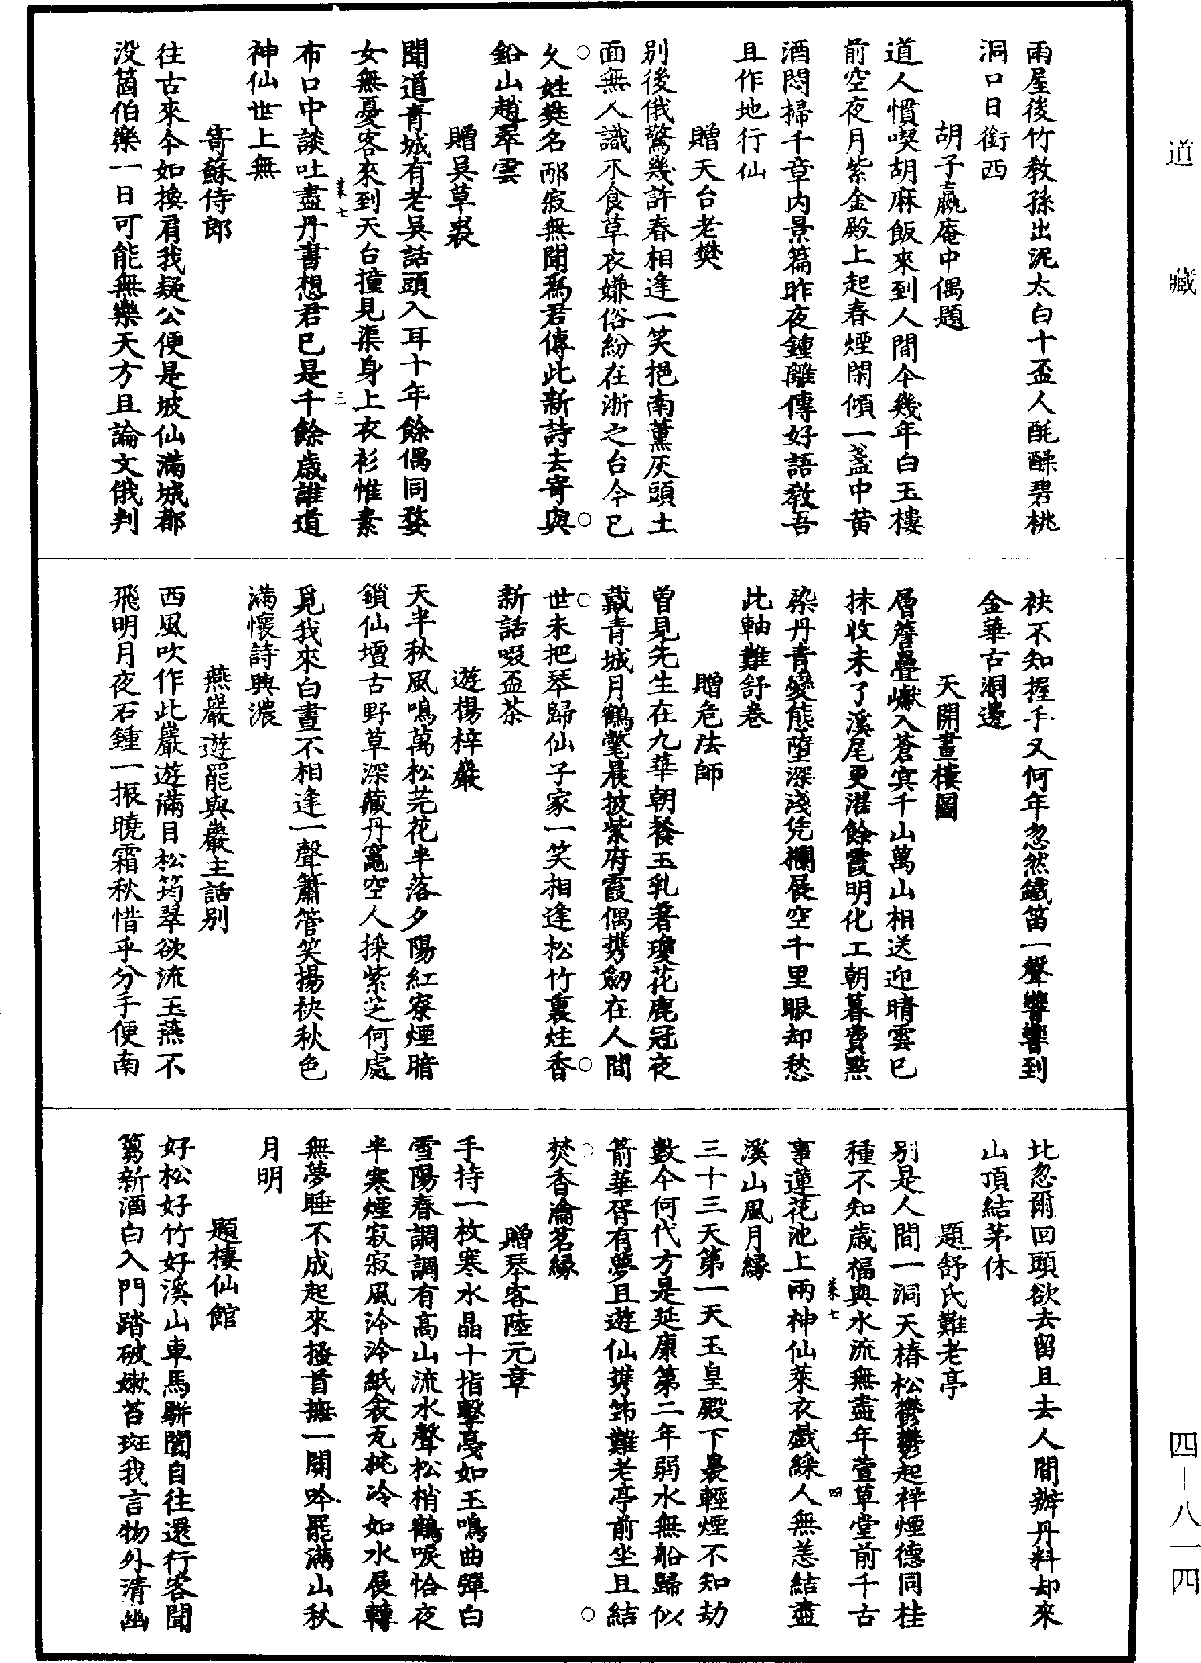 道藏
雨屋後竹教孫出泥太白十盃人酕醄碧桃
洞口日銜西
胡子嬴庵中偶題
道人慣喫胡麻飯來到人間今幾年白玉樓
前空夜月紫金殿上起春煙閑傾一盞中黄
酒悶掃千章内景篇昨夜鍾離傳好語教吾
且作地行仙
贈天台老樊
别後俄驚幾許春相逢一笑挹南薰灰頭土
面無人識不食草衣嫌俗紛在浙之台今已
久姓樊名邴寂無聞爲君傳此新詩去寄與
鉛山趙翠雲
贈吳草裘
聞道青城有老吳話頭入耳十年餘偶同婺
女無憂客來到天台撞見渠身上衣衫惟素
布口中談吐盡丹書想君已是千餘歲誰道
神仙世上無
寄蘇侍郎
往古來今如換肩我疑公便是坡仙滿城都
没箇伯樂一日可能無樂天方且論文俄判
袂不知握手又何年忽然鐵笛一聲響響到
金華古洞邊
天開畫樓圖
層簷疊巘入蒼㝠千山萬山相送迎晴雲已
抹收未了溪尾更濯餘霞明化工朝暮費點
染丹青變態墮深淺凭欄展空千里眼却愁
此軸難舒卷
贈危法師
曾見先生在九華朝餐玉乳著瓊花鹿冠夜
戴青城月鶴氅晨披紫府霞偶攜劒在人間
世未把琴歸仙子家一笑相逢松竹裏炷香
新話啜盃茶
遊楊梓巖
天半秋風鳴萬松芫花半落夕陽紅寮煙暗
鎖仙壇古野草深藏丹竈空人採紫芝何處
覓我來白晝不相逢一聲簫管笑揚袂秋色
滿懷詩興濃
燕巖遊罷與巖主話别
西風吹作此巖遊滿目松筠翠欲流玉燕不
飛明月夜石鍾一振曉霜秋惜乎分手便南
北忽爾回頭欲去留且去人間辦丹料却來
山頂結茅休
題舒氏難老亭
别是人間一洞天椿松鬱鬱起祥煙德同桂
種不知歲福與水流無盡年萱草堂前千古
事蓮花池上兩神仙萊衣戲綵人無恙結盡
溪山風月緣
三十三天第一天玉皇殿下裊輕煙不知劫
數今何代方是延康第二年弱水無船歸似
箭華胥有夢且遊仙攜笻難老亭前坐且結
焚香瀹茗緣
贈琴客陸元章
手持一枚寒水晶十指擊戛如玉鳴曲彈白
雪陽春調調有高山流水聲松梢鶴唳恰夜
半寒煙寂寂風泠泠紙衾瓦枕冷如水展轉
無夢睡不成起來搔首撫一闋吟罷滿山秋
月明
題棲仙館
好松好竹好溪山車馬駢闐自往還行客聞
篘新酒白入門踏破嫩苔斑我言物外清幽
四－八一四